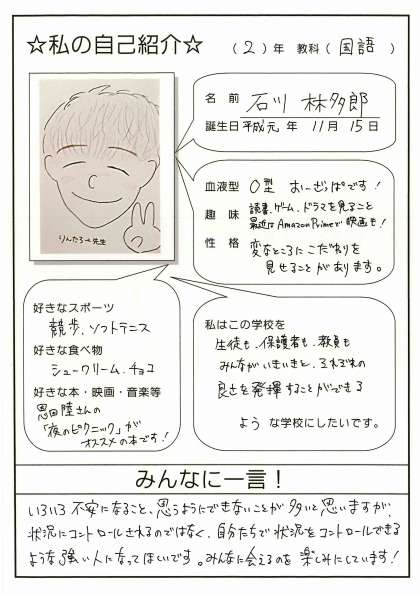 ☆私の自己紹介☆ （2）年 教科（国語）
名前 石川 林多郎
誕生日 平成元年 11月 15日
りんたろー先生
血液型 O型 おーざっぱです！
趣味 読書、ゲーム、ドラマを見ること
最近はAmazon Primeで映画も！
性格 変なところにこだわりを
見せることがあります。
好きなスポーツ
競歩、ソフトテニス
好きな食べ物
シュークリーム、チョコ
好きな本・映画・音楽等
恩田陸さんの
「夜のピクニック」が
オススメの本です！
私はこの学校を
生徒も、保護者も、教員も
みんながいきいきと、それぞれの
良さを発揮することができる
ような学校にしたいです。
みんなに一言！
いろいろ不安になること、思うようにできないことが多いと思いますが、
状況にコントロールされるのではなく、自分たちで状況をコントロールできる
ような強い人になってほしいです。みんなに会えるのを楽しみにしています！